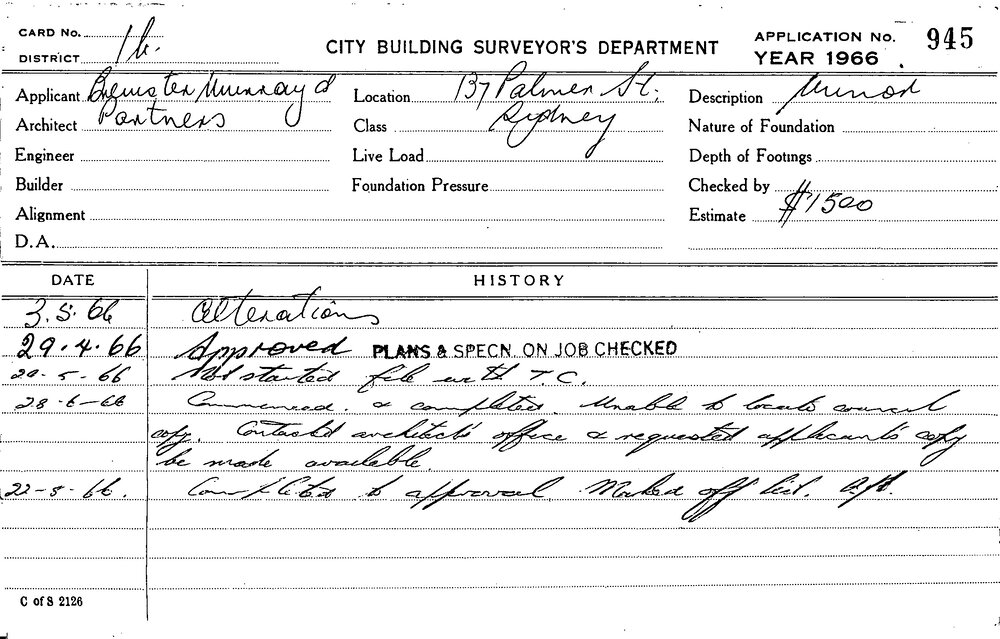 CARD No.
DISTRICT 1b.
CITY BUILDING SURVEYOR'S DEPARTMENT
APPLICATION No. 945
YEAR 1966
Applicant Brewster Murray &
Architect Partners
Engineer
Builder
Alignment
D.A.
Location 137 Palmer St,
Class Sydney
Live Load
Foundation Pressure
Description Minor
Nature of Foundation
Depth of Footings
Checked by
Estimate $1500
DATE HISTORY
3.5.66 Alterations
29.4.66 Approved PLANS & SPECN. ON JOB CHECKED
20-5-66 Not started file with T.C.
28-6-66 Commenced. & completed. Unable to locate council
copy. Contacted architect's office & requested applicant's copy
be made available.
22-8-66. Completed to approval. Marked off list.
C of S 2126